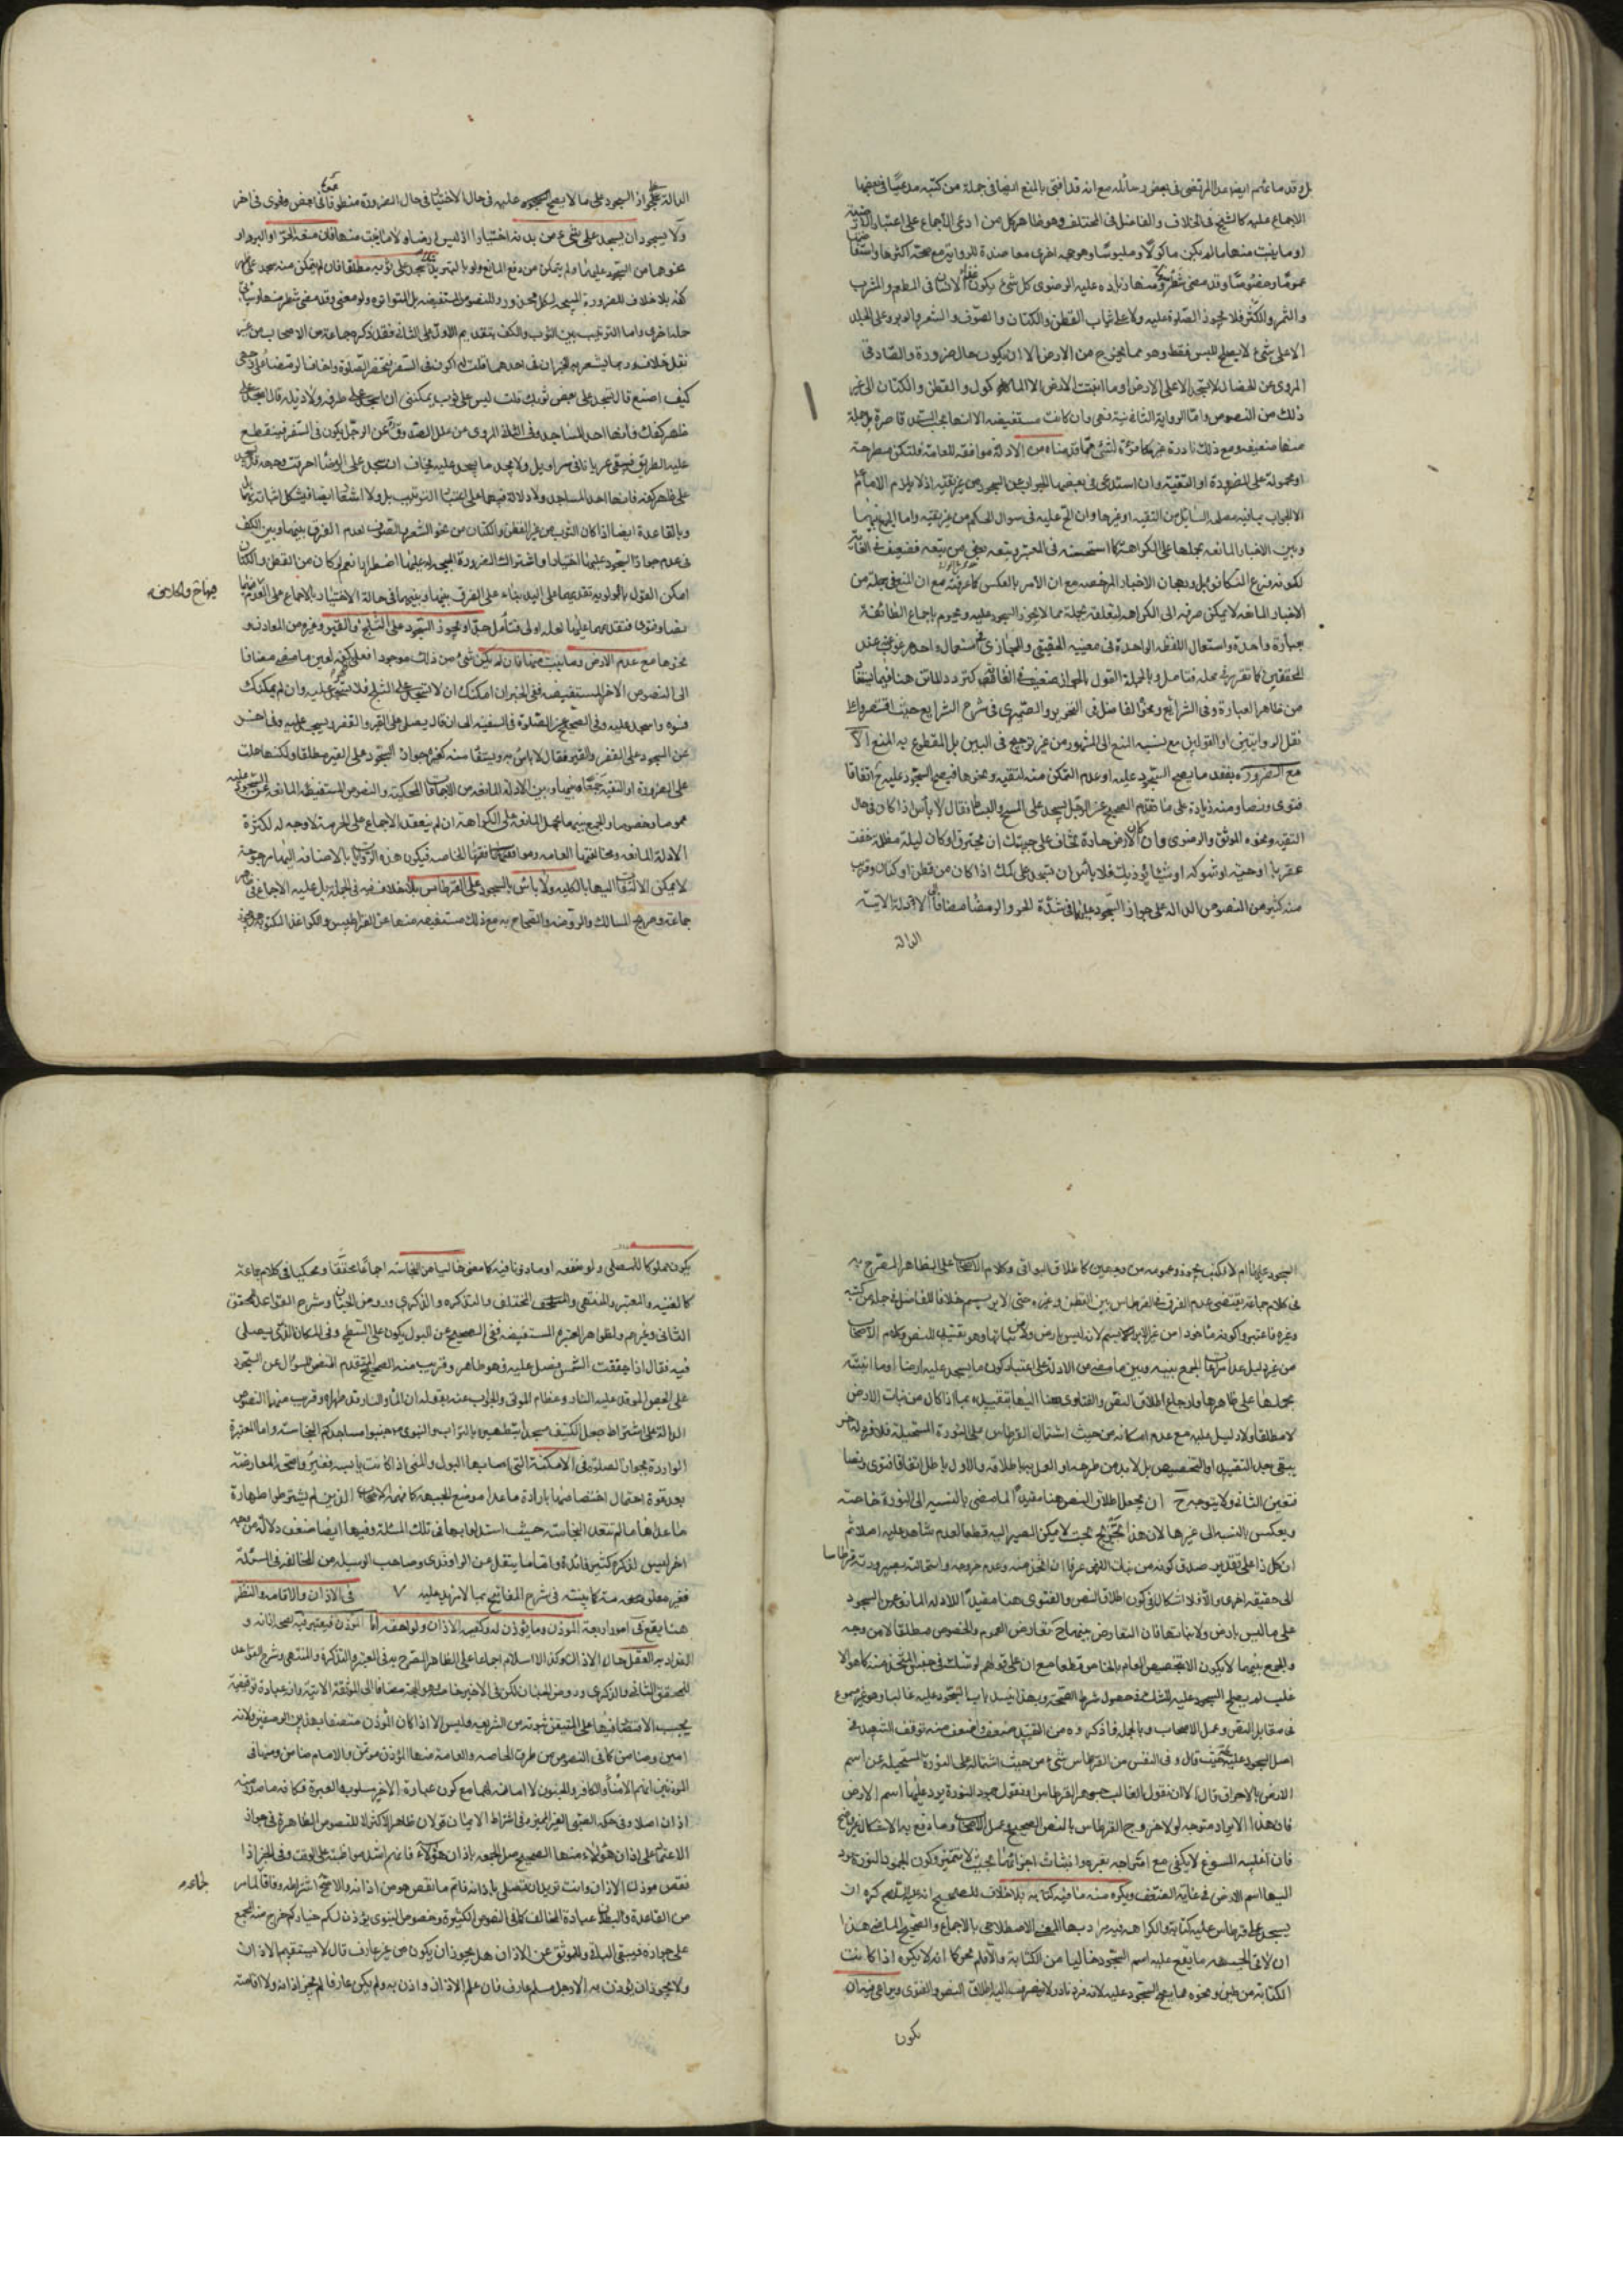 بل وقد ما عنهم ايضا عد المرتضى فى بعض رسائله مع انه قد افتى بالمنع ايضا فى جملة من كتبه مدعيا فى بعضها
الاجماع عليه كالشيخ فى الخلاف والفاضل فى المختلف وهو ظاهر كل من ادعى الاجماع على اعتبار الارضية
او ما ينبت منها ما لم يكن ماكولا او ملبوسا وهو حجة اخرى معاضدة للرواية مع صحة اكثرها واستفا
عموما وخصوصا وقد مضى شطر منها زيادة عليه الرضوى كل شىء يكون غذاء الانسان فى المطعم والمشرب
والثمر والكثر فلا يجوز الصلوة عليه ولا على ثياب القطن والكتان والصوف والشعر والوبر وعلى الجلد
الا على شىء لا يصلح للبس فقط وهو مما يخرج من الارض الا ان يكون حال ضرورة والصادقى
المروى عن الخصال لا يسجد الا على الارض او ما انبتت الارض الا الماكول والقطن والكتان الى غير
ذلك من النصوص واما الرواية الثانية فهى وان كانت مستفيضة الا انها بحسب السند قاصرة بل جملة
منها ضعيفة ومع ذلك نادرة غير مكافئة لشىء مما قدمناه من الادلة موافقة للعامة فلتكن مطرحة
او محمولة على الضرورة او التقية وان استدعى فى بعضها الجواب عن السجود من غير تقية اذ لا يلزم الامام
الا الجواب بما فيه مصلحة السائل من التقية او غيرها وان الح عليه فى سوال الحكم من غير تقية واما الجمع بينها
وبين الاخبار المانعة بحملها على الكراهة كما استحسنه فى المعتبر وتبعه بعض من تبعه فضعيف فى الغاية
لكونه فرع التكافؤ قبل ورجحان الاخبار المرخصة مع ان الامر بالعكس كما عرفته مع ان المنع فى جملة من
الاخبار المانعة لا يمكن صرفه الى الكراهة لتعلقه بجملة مما لا يجوز السجود عليه ومحرم باجماع الطائفة
بعبارة واحدة واستعمال اللفظة الواحدة فى معنييه الحقيقى والمجازى فى استعمال واحد مرغوب عنه عند
المحققين كما تقرر فى محله فتامل وبالجملة القول بالجواز ضعيف فى الغاية كتردد الماتن هنا فيما يستفا
من ظاهر العبارة وفى الشرايع ونحو الفاضل فى التحرير والصيمرى فى شرح الشرايع حيث اقتصروا على
نقل الروايتين او القولين مع نسبة المنع الى المشهور من غير ترجيح فى البين بل المقطوع به المنع الا
مع الضرورة بفقد ما يصح السجود عليه او عدم التمكن منه لتقية ونحوها فيصح السجود عليه ح اتفاقا
فتوى ونصا ومنه زيادة على ما تقدم الصحيح عن الرجل يسجد على المسح والبساط فقال لا باس اذا كان فى حال
التقية ونحوه الموثق والرضوى وان كان الارض حارة تخاف على جبهتك ان تحترق او كان ليلة مظلمة خفت
عقربا او حية او شوكة او شيئا يؤذيك فلا باس ان تسجد على كمك اذا كان من قطن او كتان وقريب
منه كثير من النصوص الدالة على جواز السجود عليها فى شدة الحر والرمضا مضافا الى الادلة الاتية
الدالة
الدالة على جواز السجود على ما لا يصح السجود عليه فى حال الاختيار فى حال الضرورة منطوقا فى بعض وفحوى فى اخر
ولا يجوز ان يسجد على شىء من بدنه اختيارا اذ ليس ارضا ولا ما ينبت منها فان منعه الحر او البرد او
نحوهما من السجود عليها ولم يتمكن من دفع المانع ولو بالتبريد سجد على ثوبه مطلقا فان لم يتمكن منه سجد على ظهر
كفه بلا خلاف للضرورة المبيحة لكل محذور وللنصوص المستفيضة بل المتواترة ولو معنى وقد مضى شطر منها وسياتى
جملة اخرى واما الترتيب بين الثوب والكف بتقديم الاول على الثانى فقد ذكره جماعة من الاصحاب من غير
نقل خلاف وربما يشعر به الخبران فى احدهما قلت له اكون فى السفر فتحضر الصلوة واخاف الرمضا على وجهى
كيف اصنع قال تسجد على بعض ثوبك قلت ليس على ثوب يمكننى ان اسجد على طرفه ولا ذيله قال اسجد على
ظهر كفك فانها احد المساجد وفى الثانى المروى عن علل الصدوق عن الرجل يكون فى السفر فيقطع
عليه الطريق فيبقى عريانا فى سراويل ولا يجد ما يسجد عليه يخاف ان سجد على الرمضا احرقت وجهه قال يسجد
على ظاهر كفه فانها احد المساجد ولا دلالة فيهما على اعتبار الترتيب بل ولا اشعار ايضا فيشكل اثباته بهما
وبالقاعدة ايضا اذا كان الثوب من غير القطن والكتان من نحو الشعر والصوف لعدم الفرق بينهما وبين الكف
فى عدم جواز السجود عليهما اختيارا واشتراك الضرورة المبيحة له عليهما اضطرارا نعم لو كان من القطن والكتان
امكن القول بالاولوية بتقديمهما على اليد بناء على الفرق بينهما وبينها فى حالة الاختيار بالاجماع على العدم فيها
نصا وفتوى فتقديمهما عليها لعله اولى فتامل جدا ولا يجوز السجود على الثلج والقير وغيره من المعادن و
نحوها مع عدم الارض وما ينبت منها فان لم يكن شىء من ذلك موجودا فعلى كفه لعين ما مضى مضافا
الى النصوص الاخر المستفيضة ففى الخبر ان امكنك ان لا تسجد على الثلج فلا تسجد عليه وان لم يمكنك
فسوه واسجد عليه وفى الصحيح عن الصلوة فى السفينة الى ان قال يصلى على القير والقفر ويسجد عليه وفى اخر
عن السجود على القفر والقير فقال لا باس به ويستفاد منه كغيره جواز السجود على القير مطلقا ولكنها حملت
على الضرورة او التقية جمعا بينها وبين الادلة المانعة من الاجماعات المحكية والنصوص المستفيضة المانعة عن السجود عليه
عموما وخصوصا والجمع بينهما بحمل المانعة على الكراهة ان لم ينعقد الاجماع على الحرمة لا وجه له لكثرة
الادلة المانعة ومخالفتها العامة وموافقتها الخاصة فيكون هذه الروايات بالاضافة اليها مرجوحة
لا يمكن الالتفات اليها بالكلية ولا باس بالسجود على القرطاس بلا خلاف فيه فى الجملة بل عليه الاجماع فى
جماعة ومنهم المسالك والروضة والصحاح به مع ذلك مستفيضة منها عن القراطيس والكواغذ المكتوبة
ونحوها
السجود عليها ام لا فكتب يجوز وعمومه من وجهين كاطلاق البواقى وكلام الاصحاب على الظاهر المصرح به
فى كلام جماعة يقتضى عدم الفرق فى القرطاس بين القطن وغيره حتى الابريسم خلافا للفاضل فى جملة من كتبه
وغيره فاعتبروا كونه ماخوذا من غير الابريسم لانه ليس بارض ولا من نباتها وهو تقييد للنص وكلام الاصحاب
من غير دليل عدا مراعاة الجمع بينه وبين ما مضى من الادلة على اعتبار كون ما يسجد عليه ارضا او ما انبتته
بحملها على ظاهرها وارجاع اطلاق النص والفتاوى هنا اليها بتقييده بما اذا كان من نبات الارض
لا مطلقا ولا دليل عليه مع عدم امكانه من حيث اشتمال القرطاس على النورة المستحيلة فلا فرد لنا اخر
يبقى بعد التقييد او التخصيص بل لا بد من طرحه او العمل بها باطلاقه والاول باطل اتفاقا فتوى ونصا
فتعين الثانى ولا يتوجه ح ان يجعل اطلاق النص هنا مقيدا لما مضى بالنسبة الى النورة خاصة
ويعكس بالنسبة الى غيرها لان هذا تخريج بحت لا يمكن المصير اليه قطعا لعدم شاهد عليه اصلا ثم
ان كل ذا على تقدير صدق كونه من نبات الارض عرفا ان اتخذ منه وعدم خروجه واستحالته بصيرورته قرطاسا
الى حقيقة اخرى والا فلا اشكال فى كون اطلاق النص والفتوى هنا مقيدا للادلة المانعة عن السجود
على ما ليس بارض ولا نباتها فان التعارض بينهما ح تعارض العموم والخصوص مطلقا لا من وجه
والجمع بينهما لا يكون الا بتخصيص العام بالخاص قطعا مع ان على قولهم لو شك فى جنس المتخذ منه كما هو الا
غلب لم يصح السجود عليه للشك فى حصول شرط الصحة وبهذا ينسد باب السجود عليه غالبا وهو غير مسموع
فى مقابل النص وعمل الاصحاب وبالجملة فما ذكروه من القيد ضعيف واضعف منه توقف الشهيد فى
اصل السجود عليه حيث قال وفى النفس من القرطاس شىء من حيث اشتماله على النورة المستحيلة عن اسم
الارض بالاحراق قال الا ان نقول الغالب جوهر القرطاس او نقول جمود النورة يرد عليها اسم الارض
فان هذا الايراد متوجه لولا خروج القرطاس بالنص الصحيح وعمل الاصحاب وما دفع به الاشكال غير واضح
فان اغلبية المسوغ لا يكفى مع امتزاجه بغيره وانبثاث اجزائهما بحيث لا يتميز وكون الجمود النورة يرد
اليها اسم الارض فى غاية الضعف ويكره منه ما فيه كتابة بلا خلاف للصحيح انه عليه السلم كره ان
يسجد على قرطاس عليه كتابة والكراهة فيه يراد بها المعنى الاصطلاحى بالاجماع والصحيح الماضى هذا
ان لاقى الجبهة ما يقع عليه اسم السجود خاليا من الكتابة والا فلم يجز كما انه لا يكره اذا كانت
الكتابة من طين ونحوه مما يصح السجود عليه لانه فرد نادر لا ينصرف اليه اطلاق النص والفتوى ويراعى فيه ان
يكون
يكون مملوكا للمصلى ولو منفعة او ماذونا فيه كما مضى خاليا من النجاسة اجماعا محققا ومحكيا فى كلام جماعة
كالغنية والمعتبر والمنتهى والمختلف والتذكره والذكرى وروض الجنان وشرح القواعد للمحقق
الثانى وغيرهم ولظواهر المعتبرة المستفيضة ففى الصحيح عن البول يكون على السطح وفى المكان الذى يصلى
فيه فقال اذا جففته الشمس فصل عليه فهو طاهر وقريب منه الصحيح المتقدم المتضمن للسؤال عن السجود
على الجص الموقد عليه النار وعظام الموتى والجواب عنه بقوله ان الماء والنار قد طهراه وقريب منهما النصوص
الدالة على اشتراط جعل الكنيف مسجدا بتطهيره بالتراب والنبوى جنبوا مساجدكم النجاسة واما المعتبرة
الواردة بجواز الصلوة فى الامكنة التى اصابها البول والمنى اذا كانت يابسة فغير واضحة المعارضة
بعد قوة احتمال اختصاصها بارادة ما عدا موضع الجبهة كما فهمه الاصحاب الذين لم يشترطوا طهارة
ما عداها ما لم تتعد النجاسة حيث استدلوا بها فى تلك المسئلة وفيها ايضا ضعف دلالة من وجه
اخر ليس لذكره كثير فائدة واما ما ينقل عن الراوندى وصاحب الوسيلة من المخالفة فى المسئلة
فغير معلوم صحته كما بينته فى شرح المفاتيح بما لا مزيد عليه ٧ فى الاذان والاقامة والنظر
هنا يقع فى امور اربعة المؤذن وما يؤذن له وكيفية الاذان ولواحقه اما المؤذن فيعتبر فيه لصحة اذانه و
الاعتداد به العقل حال الاذان وكذا الاسلام اجماعا على الظاهر المصرح به فى المعتبر والتذكرة والمنتهى وشرح القواعد
للمحقق الثانى والذكرى وروض الجنان لكن فى الاخير خاصة وهو الحجة مضافا الى الموثقة الاتية وانه عبادة توقيفية
يجب الاقتصار فيها على المتيقن ثبوته من الشريعة وليس الا اذا كان المؤذن متصفا بهذين الوصفين ولانه
امين وضامن كما فى النصوص من طرق الخاصة والعامة منها المؤذن مؤتمن والامام ضامن ومنها فى
المؤذنين انهم الامناء والكافر والمجنون لا امانة لهما مع كون عبارة الاخير مسلوبة العبرة فكانه ما صدر منه
اذان اصلا وفى حكمه الصبى الغير المميز وفى اشتراط الايمان قولان ظاهر الاكثر لا للنصوص الظاهرة فى جواز
الاعتماد على اذان هؤلاء منها الصحيح صل الجمعة باذان هؤلاء فانهم اشد مواظبة على الوقت وفى الخبر اذا
نقص مؤذن الاذان وانت تريد ان تصلى باذانه فاتم ما نقص هو من اذانه والاصح اشتراطه وفاقا لما مر
من القاعدة والبطلان عبادة المخالف كما فى النصوص الكثيرة وخصوص النبوى يؤذن لكم خياركم خرج منه المجمع
على جوازه فيبقى الباقى وللموثق عن الاذان هل يجوز ان يكون من غير عارف قال لا يستقيم الاذان
ولا يجوز ان يؤذن به الا رجل مسلم عارف فان علم الاذان واذن به ولم يكن عارفا لم يجز اذانه ولا اقامته
لجماعة